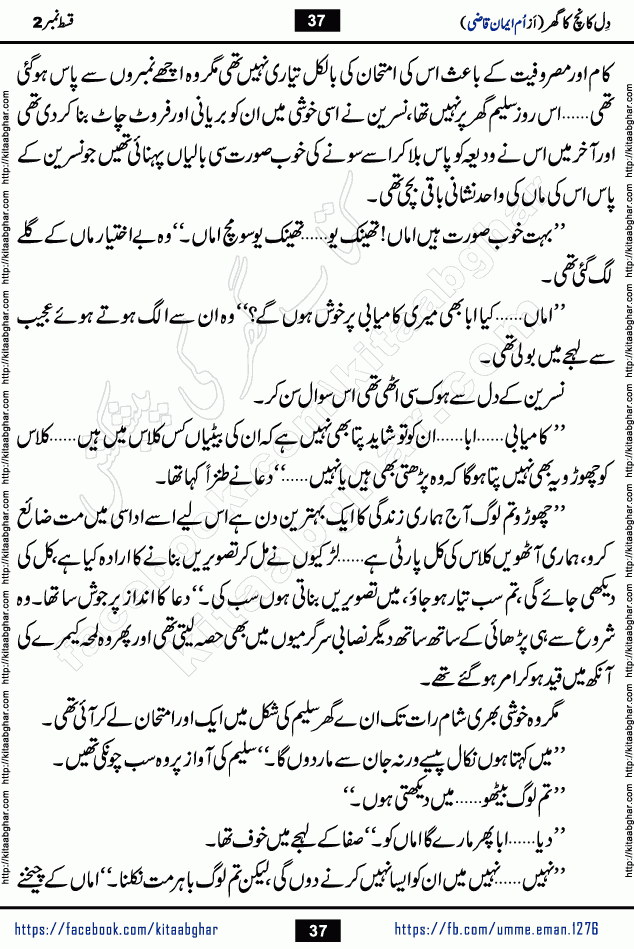 دِل کانچ کا گھر (از اُمِ ایمان قاضی)
37
قسط نمبر 2
کام اور مصروفیت کے باعث اس کی امتحان کی بالکل تیاری نہیں تھی مگر وہ اچھے نمبروں سے پاس ہو گئی
تھی......اس روز سلیم گھر پر نہیں تھا، نسرین نے اسی خوشی میں ان کو بریانی اور فروٹ چاٹ بنا کر دی تھی
اور آخر میں اس نے ودیعہ کو پاس بلا کر اسے سونے کی خوب صورت سی بالیاں پہنائی تھیں جو نسرین کے
پاس اس کی ماں کی واحد نشانی باقی بچی تھی۔
’’بہت خوب صورت ہیں اماں! تھینک یو......تھینک یو سو مچ اماں۔‘‘ وہ بے اختیار ماں کے گلے
لگ گئی تھی۔
’’اماں......کیا ابا بھی میری کامیابی پر خوش ہوں گے؟‘‘ وہ ان سے الگ ہوتے ہوئے عجیب
سے لہجے میں بولی تھی۔
نسرین کے دل سے ہوک سی اٹھی تھی اس سوال سن کر۔
’’کامیابی......ابا......ان کو تو شاید پتا بھی نہیں ہے کہ ان کی بیٹیاں کس کلاس میں ہیں......کلاس
کو چھوڑو یہ بھی نہیں پتا ہو گا کہ وہ پڑھتی بھی ہیں یا نہیں......‘‘ دعا نے طنزاً کہا تھا۔
’’چھوڑو تم لوگ آج ہماری زندگی کا ایک بہترین دن ہے اس لیے اسے اداسی میں مت ضائع
کرو، ہماری آٹھویں کلاس کی کل پارٹی ہے......لڑکیوں نے مل کر تصویریں بنانے کا ارادہ کیا ہے، کل کی
دیکھی جائے گی، تم سب تیار ہو جاؤ، میں تصویریں بناتی ہوں سب کی۔‘‘ دعا کا انداز پر جوش سا تھا۔ وہ
شروع سے ہی پڑھائی کے ساتھ ساتھ دیگر نصابی سرگرمیوں میں بھی حصہ لیتی تھی اور پھر وہ لمحہ کیمرے کی
آنکھ میں قید ہو کر امر ہو گئے تھے۔
مگر وہ خوشی بھری شام رات تک ان ے گھر سلیم کی شکل میں ایک اور امتحان لے کر آئی تھی۔
’’میں کہتا ہوں نکال پیسے ورنہ جان سے مار دوں گا۔‘‘ سلیم کی آواز پر وہ سب چونکی تھیں۔
’’تم لوگ بیٹھو......میں دیکھتی ہوں۔‘‘
’’دیا......ابا پھر مارے گا اماں کو۔‘‘ صفا کے لہجے میں خوف تھا۔
’’نہیں......نہیں میں ان کو ایسا نہیں کرنے دوں گی، لیکن تم لوگ باہر مت نکلنا۔‘‘ اماں کے چیخنے
https://facebook.com/kitaabghar
37
https://fb.com/umme.eman.1276
http://kitaabghar.com http://kitaabghar.com http://kitaabghar.com http://kitaabghar.com http://kitaabghar.com http://kitaabghar.com http://kitaabghar.com http://kitaabghar.com
http://kitaabghar.com http://kitaabghar.com http://kitaabghar.com http://kitaabghar.com http://kitaabghar.com http://kitaabghar.com http://kitaabghar.com http://kitaabghar.com
کتاب گھر کی پیشکش
kitaabghar.com
facebook.com/kitaabghar